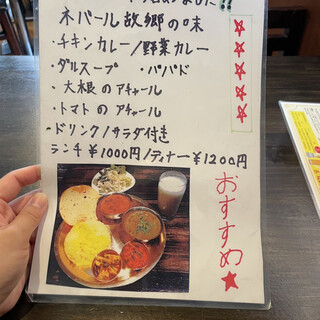 ネパール故郷の味
・チキンカレー/野菜カレー
・ダルスープ ・パパド
・大根のアチャール
・トマトのアチャール
・ドリンク/サラダ付き
ランチ ¥1000円/ディナー ¥1200円
おすすめ